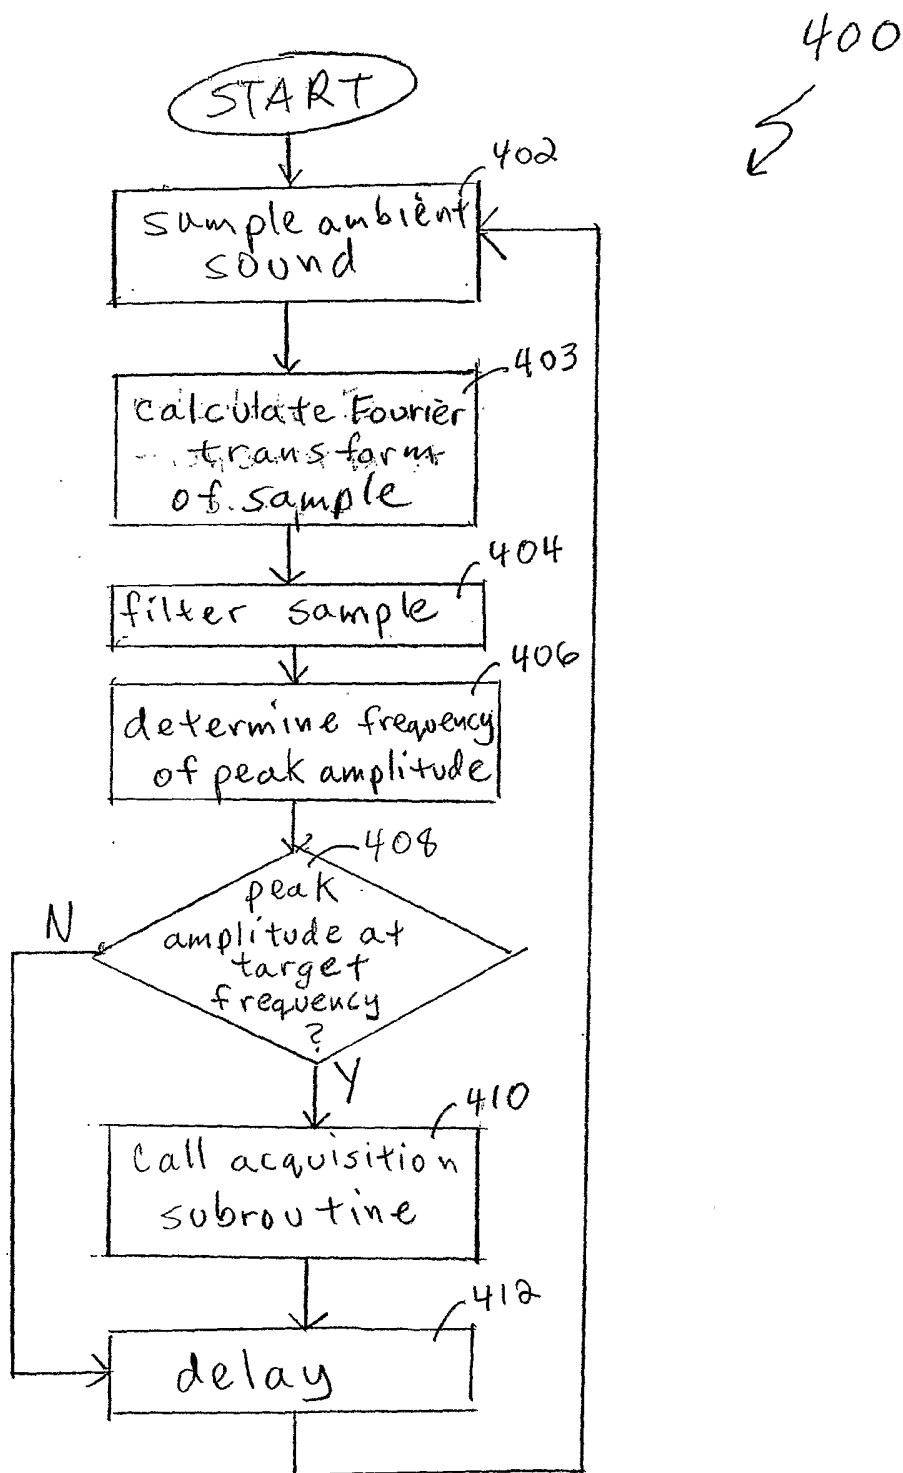 400
START
402
sample ambient
sound
403
calculate Fourier
transform
of sample
404
filter sample
406
determine frequency
of peak amplitude
408
peak
amplitude at
target
frequency
?
N
Y
410
call acquisition
subroutine
412
delay